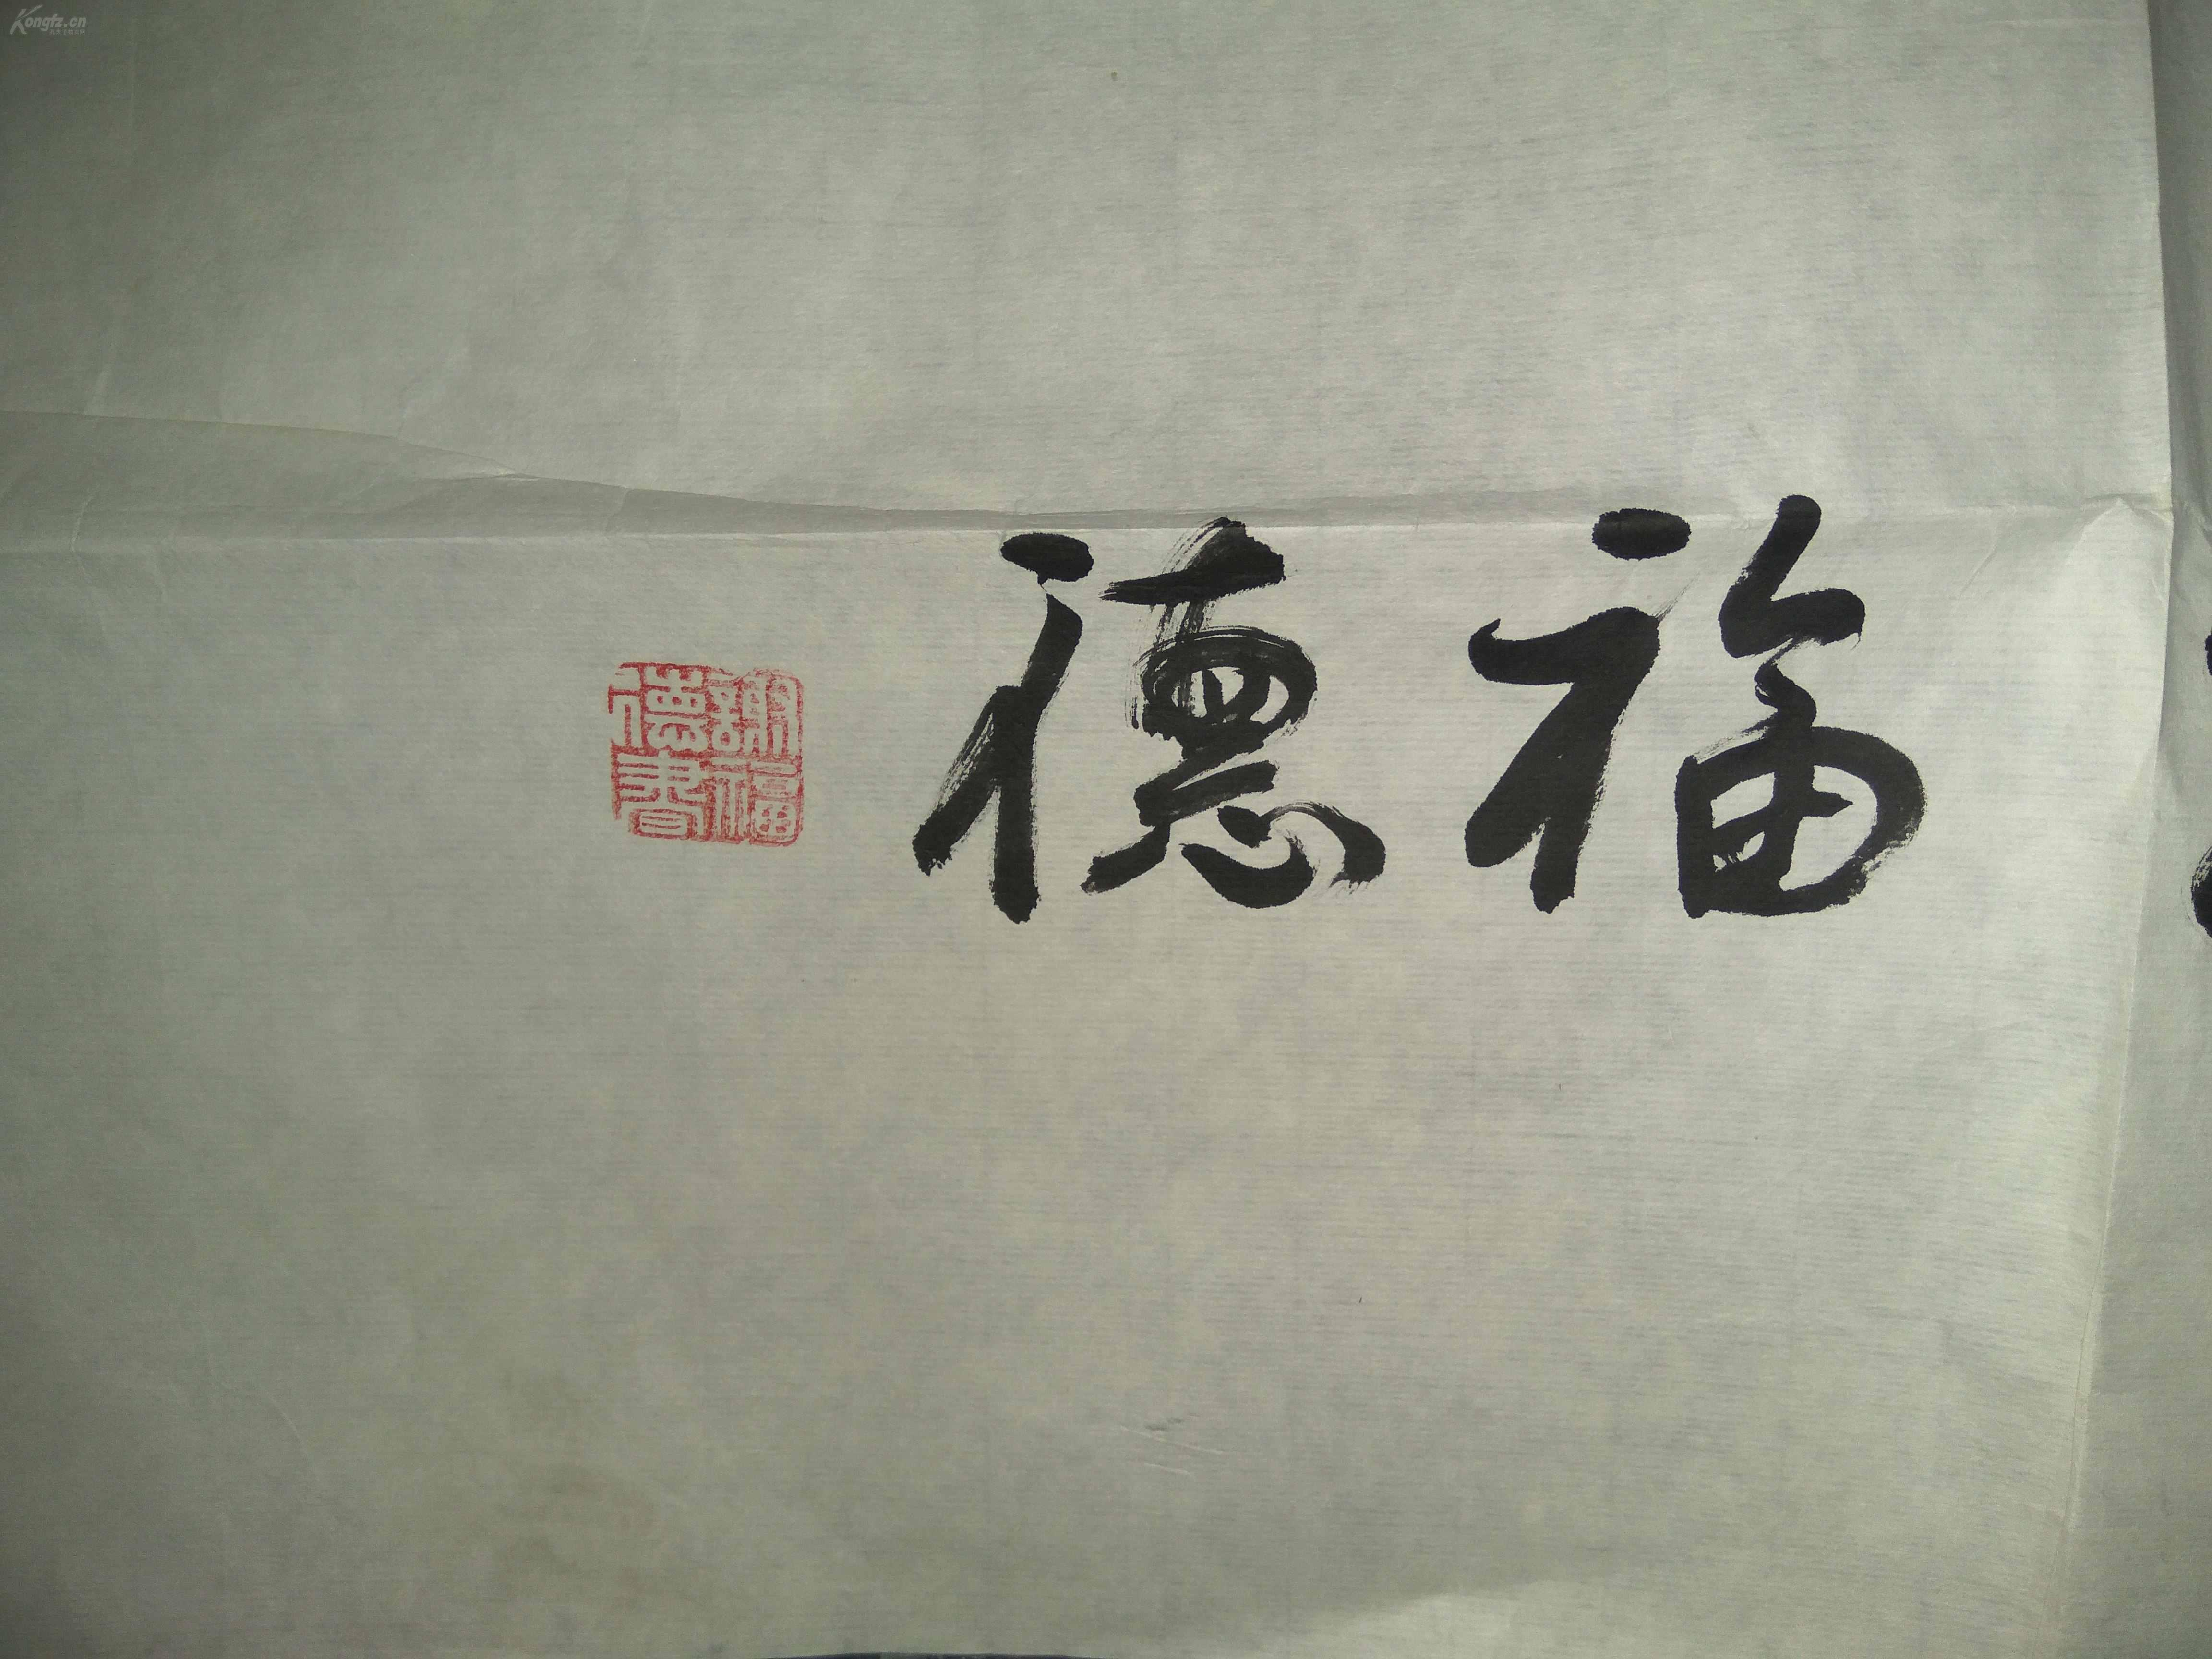 Kongfz.cn
福德
謝福德書